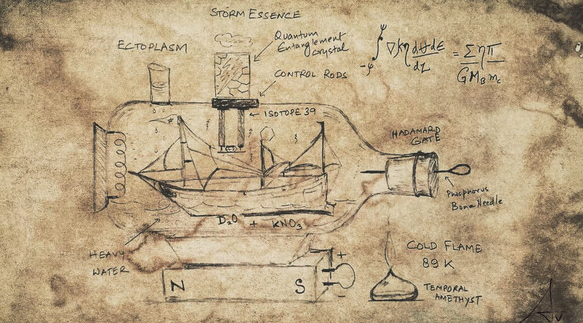 STORM ESSENCE
ECTOPLASM
Quantum
Entanglement
crystal
CONTROL RODS
ISOTOPE 39
HADAMARD
GATE
Phosphorus
Bone Needle
D₂O + KNO₃
HEAVY
WATER
N S
+
−
COLD FLAME
89 K
TEMPORAL
AMETHYST